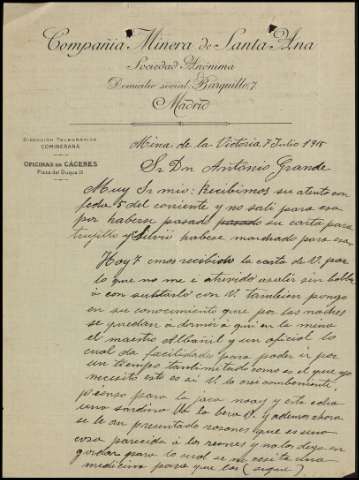 Compañia Minera de Santa Ana
Sociedad Anónima
Domicilio social: Barquillo, 7
Madrid
DIRECCIÓN TELEGRÁFICA
COMINERANA
OFICINAS DE CÁCERES
Plaza del Duque, 13
Mina de la Victoria 7 Julio 191
Sr Dn Antonio Grande
Muy Sr mio: Recibimos su atento con
fecha 5 del corriente y no sali para esa
por haberse pasado su carta para
trujillo y haberse marchado para esa
Hoy 7 emos recibido la carta de V. por
lo que no me e atrevido asalir sin habla
ó con sultarlo con V. tambien pongo
en su conocimiento que por las noches
se quedan a dormir á qui en la mina
el maestro Albañil y un oficial lo
cual da facilidades para poder ir por
un tiempo tanlimitado como es el que yo
necesito esto es si V. lo cree combeniente,
pienso para la jaca y esta edia
uno sardina V. y ademas ahora
se le an presentado rosones que es una
cosa parecida á los resnos y no los deja en
gordar para lo cual se necesita una
medicina para que los (sigue)